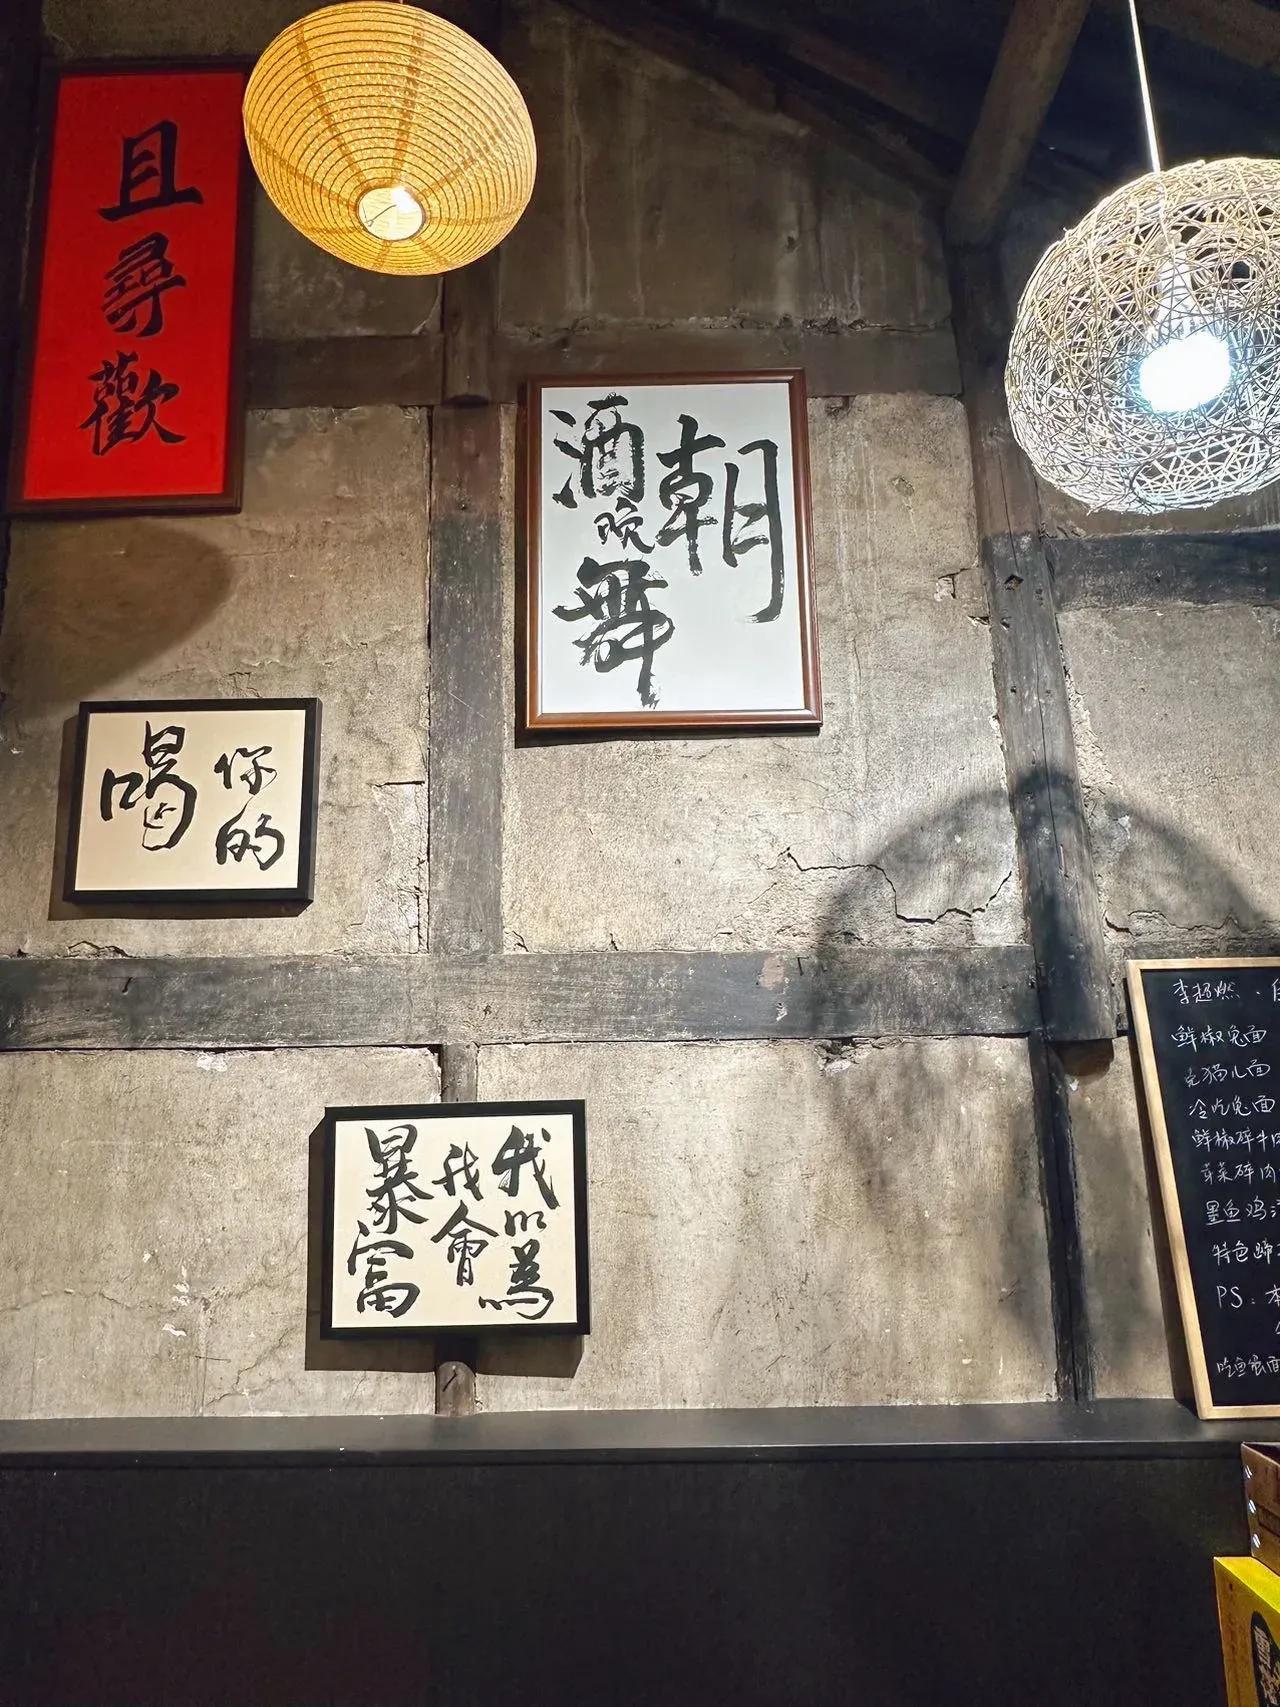 且尋歡
朝
酒晚舞
你的
喝
我以為
我會
暴富
李超燃·
鮮椒兔面
兔猫儿面
冷吃兔面
鮮椒碎牛肉
芽菜碎肉
墨鱼鸡
特色蹄
PS：本
吃鱼蛋面